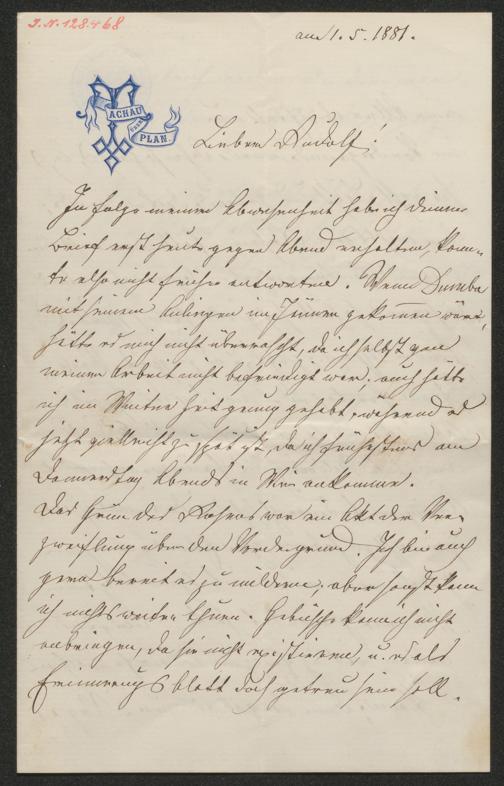 J.N. 128.468
am 1. 5. 1881.
TACHAU
BEIM
PLAN.
Lieber Rudolf!
In Folge meiner Abwesenheit hab ich deinen
Brief erst heute gegen Abend erhalten, konn-
te also nicht früher antworten. Wenn Dumba
mit seinem Anliegen im Jänner gekommen wäre,
hätte es mich nicht überrascht, da ich selbst von
meiner Arbeit nicht befriedigt war. auch hätte
ich im Winter Zeit genug gehabt, während es
jetzt vielleicht zu spät ist, da ich frühestens am
Donnerstag Abends in Wien ankomme.
Das Grün des Rasens war ein Akt der Ver-
zweiflung über den Vordergrund. Ich bin auch
gern bereit es zu mildern, aber sonst kann
ich nichts weiter thun. Gebüsche kann ich nicht
anbringen, da sie nicht existieren, u. es als
Erinnerungsblatt doch getreu sein soll.